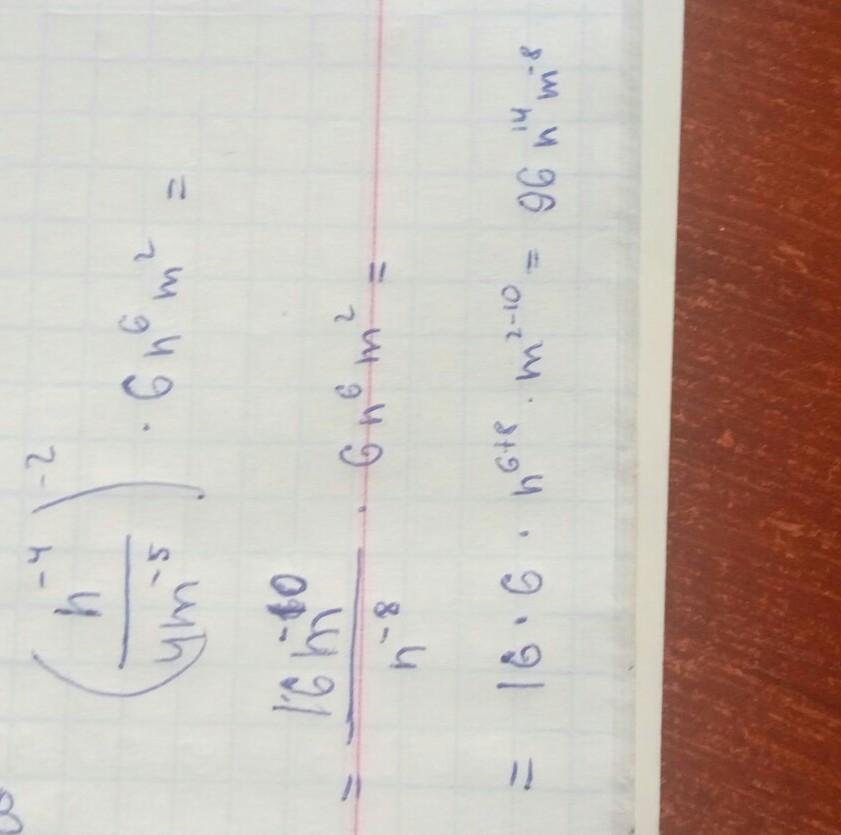 (n⁻⁴/4m⁻⁵)⁻² · 6n⁶m² =
= 16m⁻¹⁰/n⁻⁸ · 6n⁶m² =
= 16 · 6 · n⁶⁺⁸ · m²⁻¹⁰ = 96n¹⁴m⁻⁸